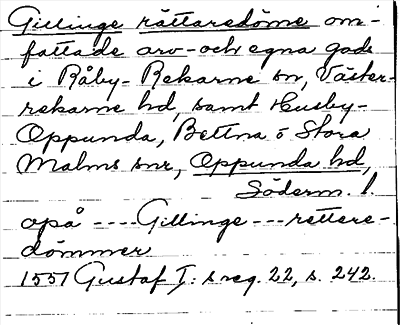 Gillinge rättaredöme om-
fattade arv- och egna gods
i Råby-Rekarne sn, Väster-
rekarne hd, samt Husby-
Oppunda, Bettna o Stora
Malms snr, Oppunda hd,
Söderm. l.
opå ---- Gillinge --- rettere-
dömmer
1557 Gustaf I: s reg. 22, s. 242.